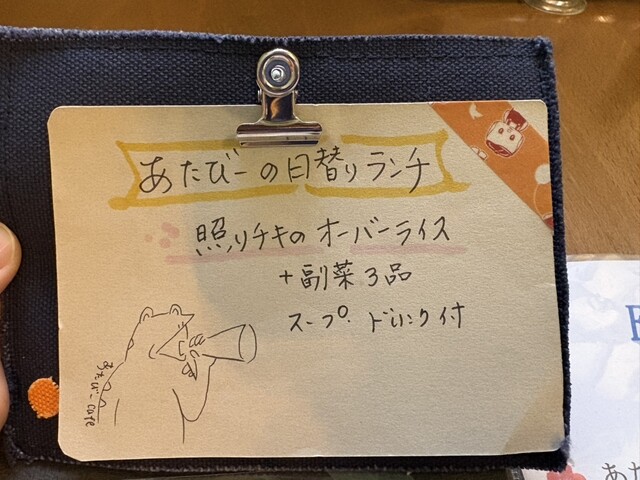 あたびーの日替りランチ
照りチキのオーバーライス
+副菜3品
スープ ドリンク付
あたびーcafe
あた